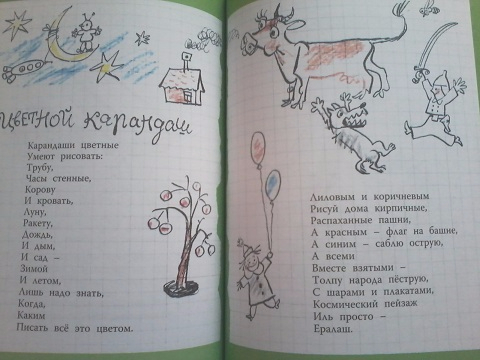 ЦВЕТНОЙ КАРАНДАШ
Карандаши цветные
Умеют рисовать:
Трубу,
Часы стенные,
Корову
И кровать,
Луну,
Ракету,
Дождь,
И дым,
И сад –
Зимой
И летом,
Лишь надо знать,
Когда,
Каким
Писать всё это цветом.
Лиловым и коричневым
Рисуй дома кирпичные,
Распаханные пашни,
А красным – флаг на башне,
А синим – саблю острую,
А всеми
Вместе взятыми –
Толпу народа пёструю,
С шарами и плакатами,
Космический пейзаж
Иль просто –
Ералаш.